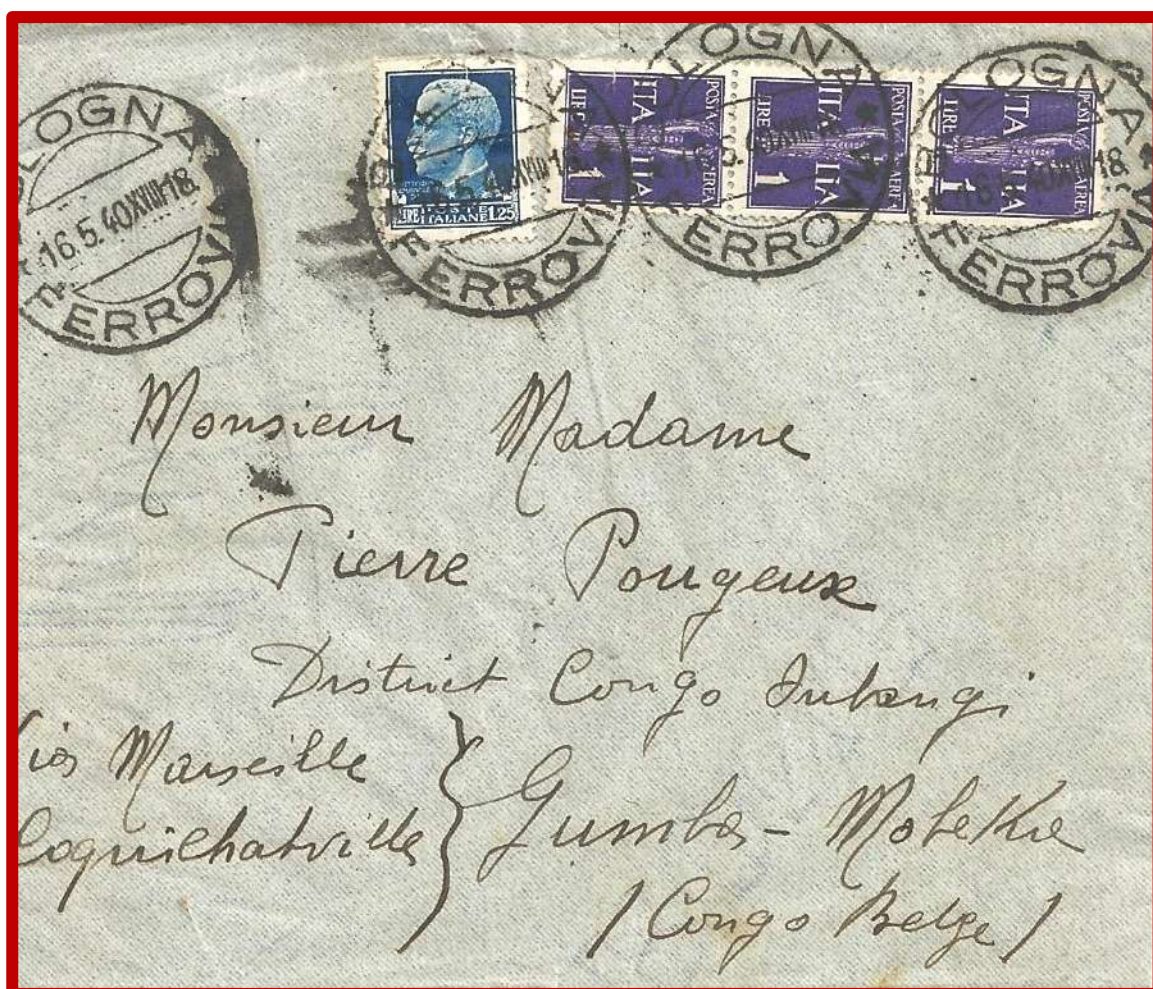 BOLOGNA
16.5.40XVIII-18
FERROVIA
LIRE POSTE ITALIANE L.25
POSTA AEREA
ITALIA
LIRE 1
POSTA AEREA
ITALIA
LIRE 1
POSTA AEREA
ITALIA
LIRE 1
OLOGNA
16.5.40XVIII-18
FERROVIA
Monsieur Madame
Pierre Pougeux
District Congo Inbangi
Via Marseille
Coquilhatville
Gumba - Mobeka
/ Congo Belge /